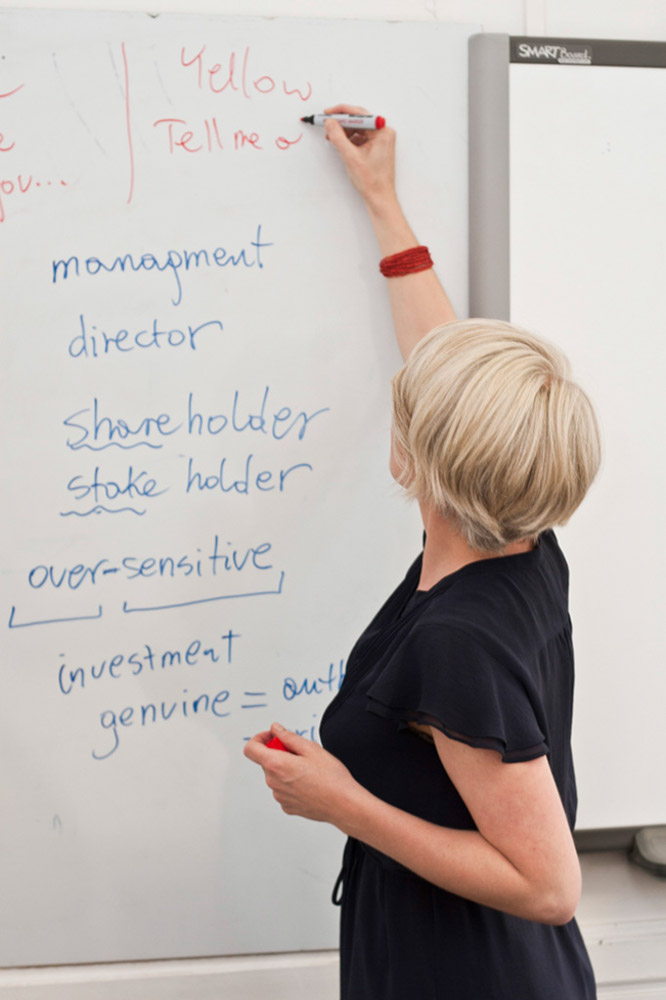 Yellow
Tell me a
you...
managment
director
shareholder
stake holder
over-sensitive
investment
genuine =
SMART Board